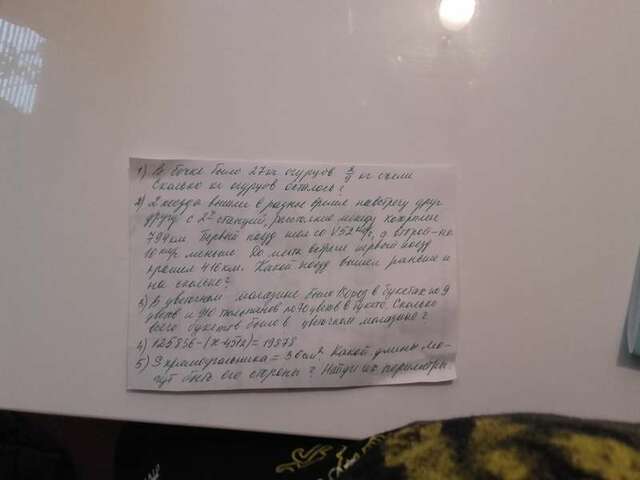 1) В бочке было 27 кг огурцов кг съели
Сколько кг огурцов осталось?
2) 2 поезда вышли в разное время навстречу друг
другу с 2х станций, расстояние между которыми
794 км Первый поезд шел со V 52 км/ч, а второй - на
км/ч меньше До места встречи первый поезд
прошел 416 км. Какой поезд вышел раньше и
на сколько?
3) В цветочном магазине было роз в букетах по 9
цветов и тюльпанов по цветов в букете. Сколько
всего букетов было в цветочном магазине?
4) 125856-(x·42)= 19578
5) S прямоугольника = 36 см² Какой длины мо-
гут быть его стороны? Найди их периметры